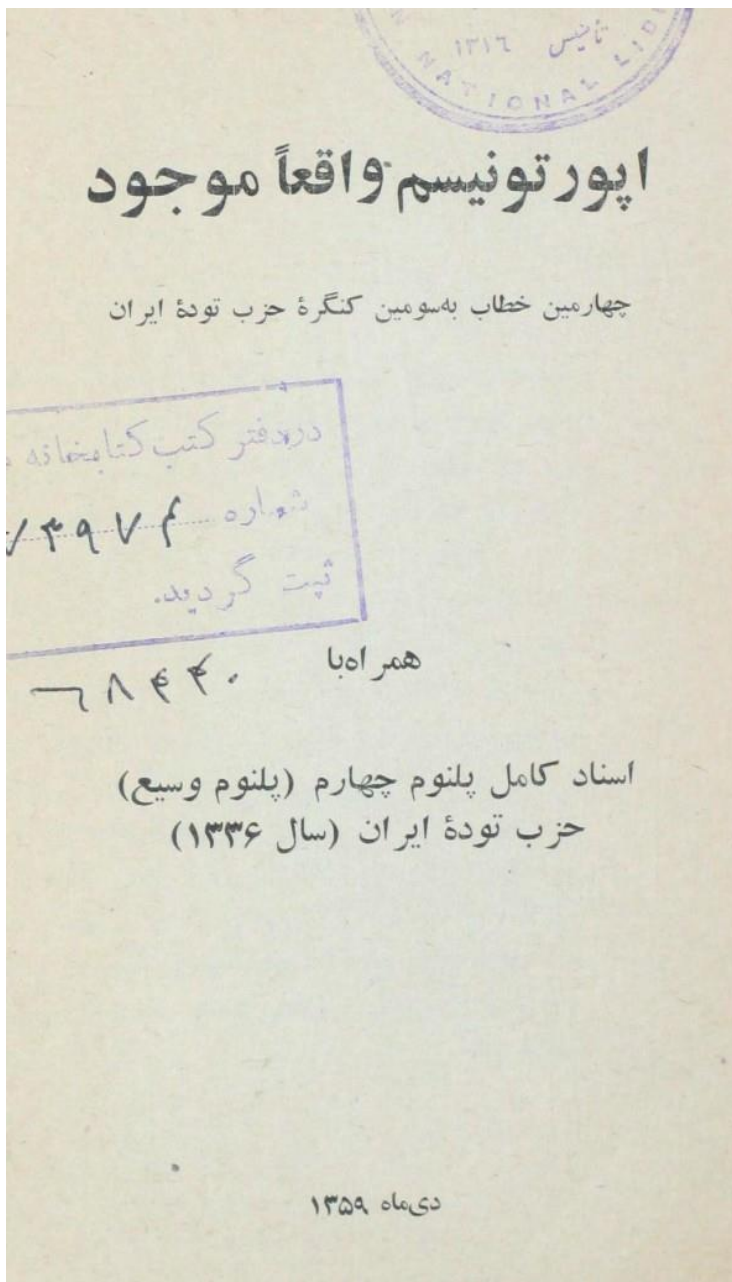 تأسیس
۱۳۱۶
NATIONAL
اپورتونیسم واقعاً موجود
چهارمین خطاب به‌سومین کنگرهٔ حزب تودهٔ ایران
در دفتر کتب کتابخانه
شماره
ثبت گردید.
۶۸۴۴۰
همراه‌با
اسناد کامل پلنوم چهارم (پلنوم وسیع)
حزب تودهٔ ایران (سال ۱۳۳۶)
دی‌ماه ۱۳۵۹